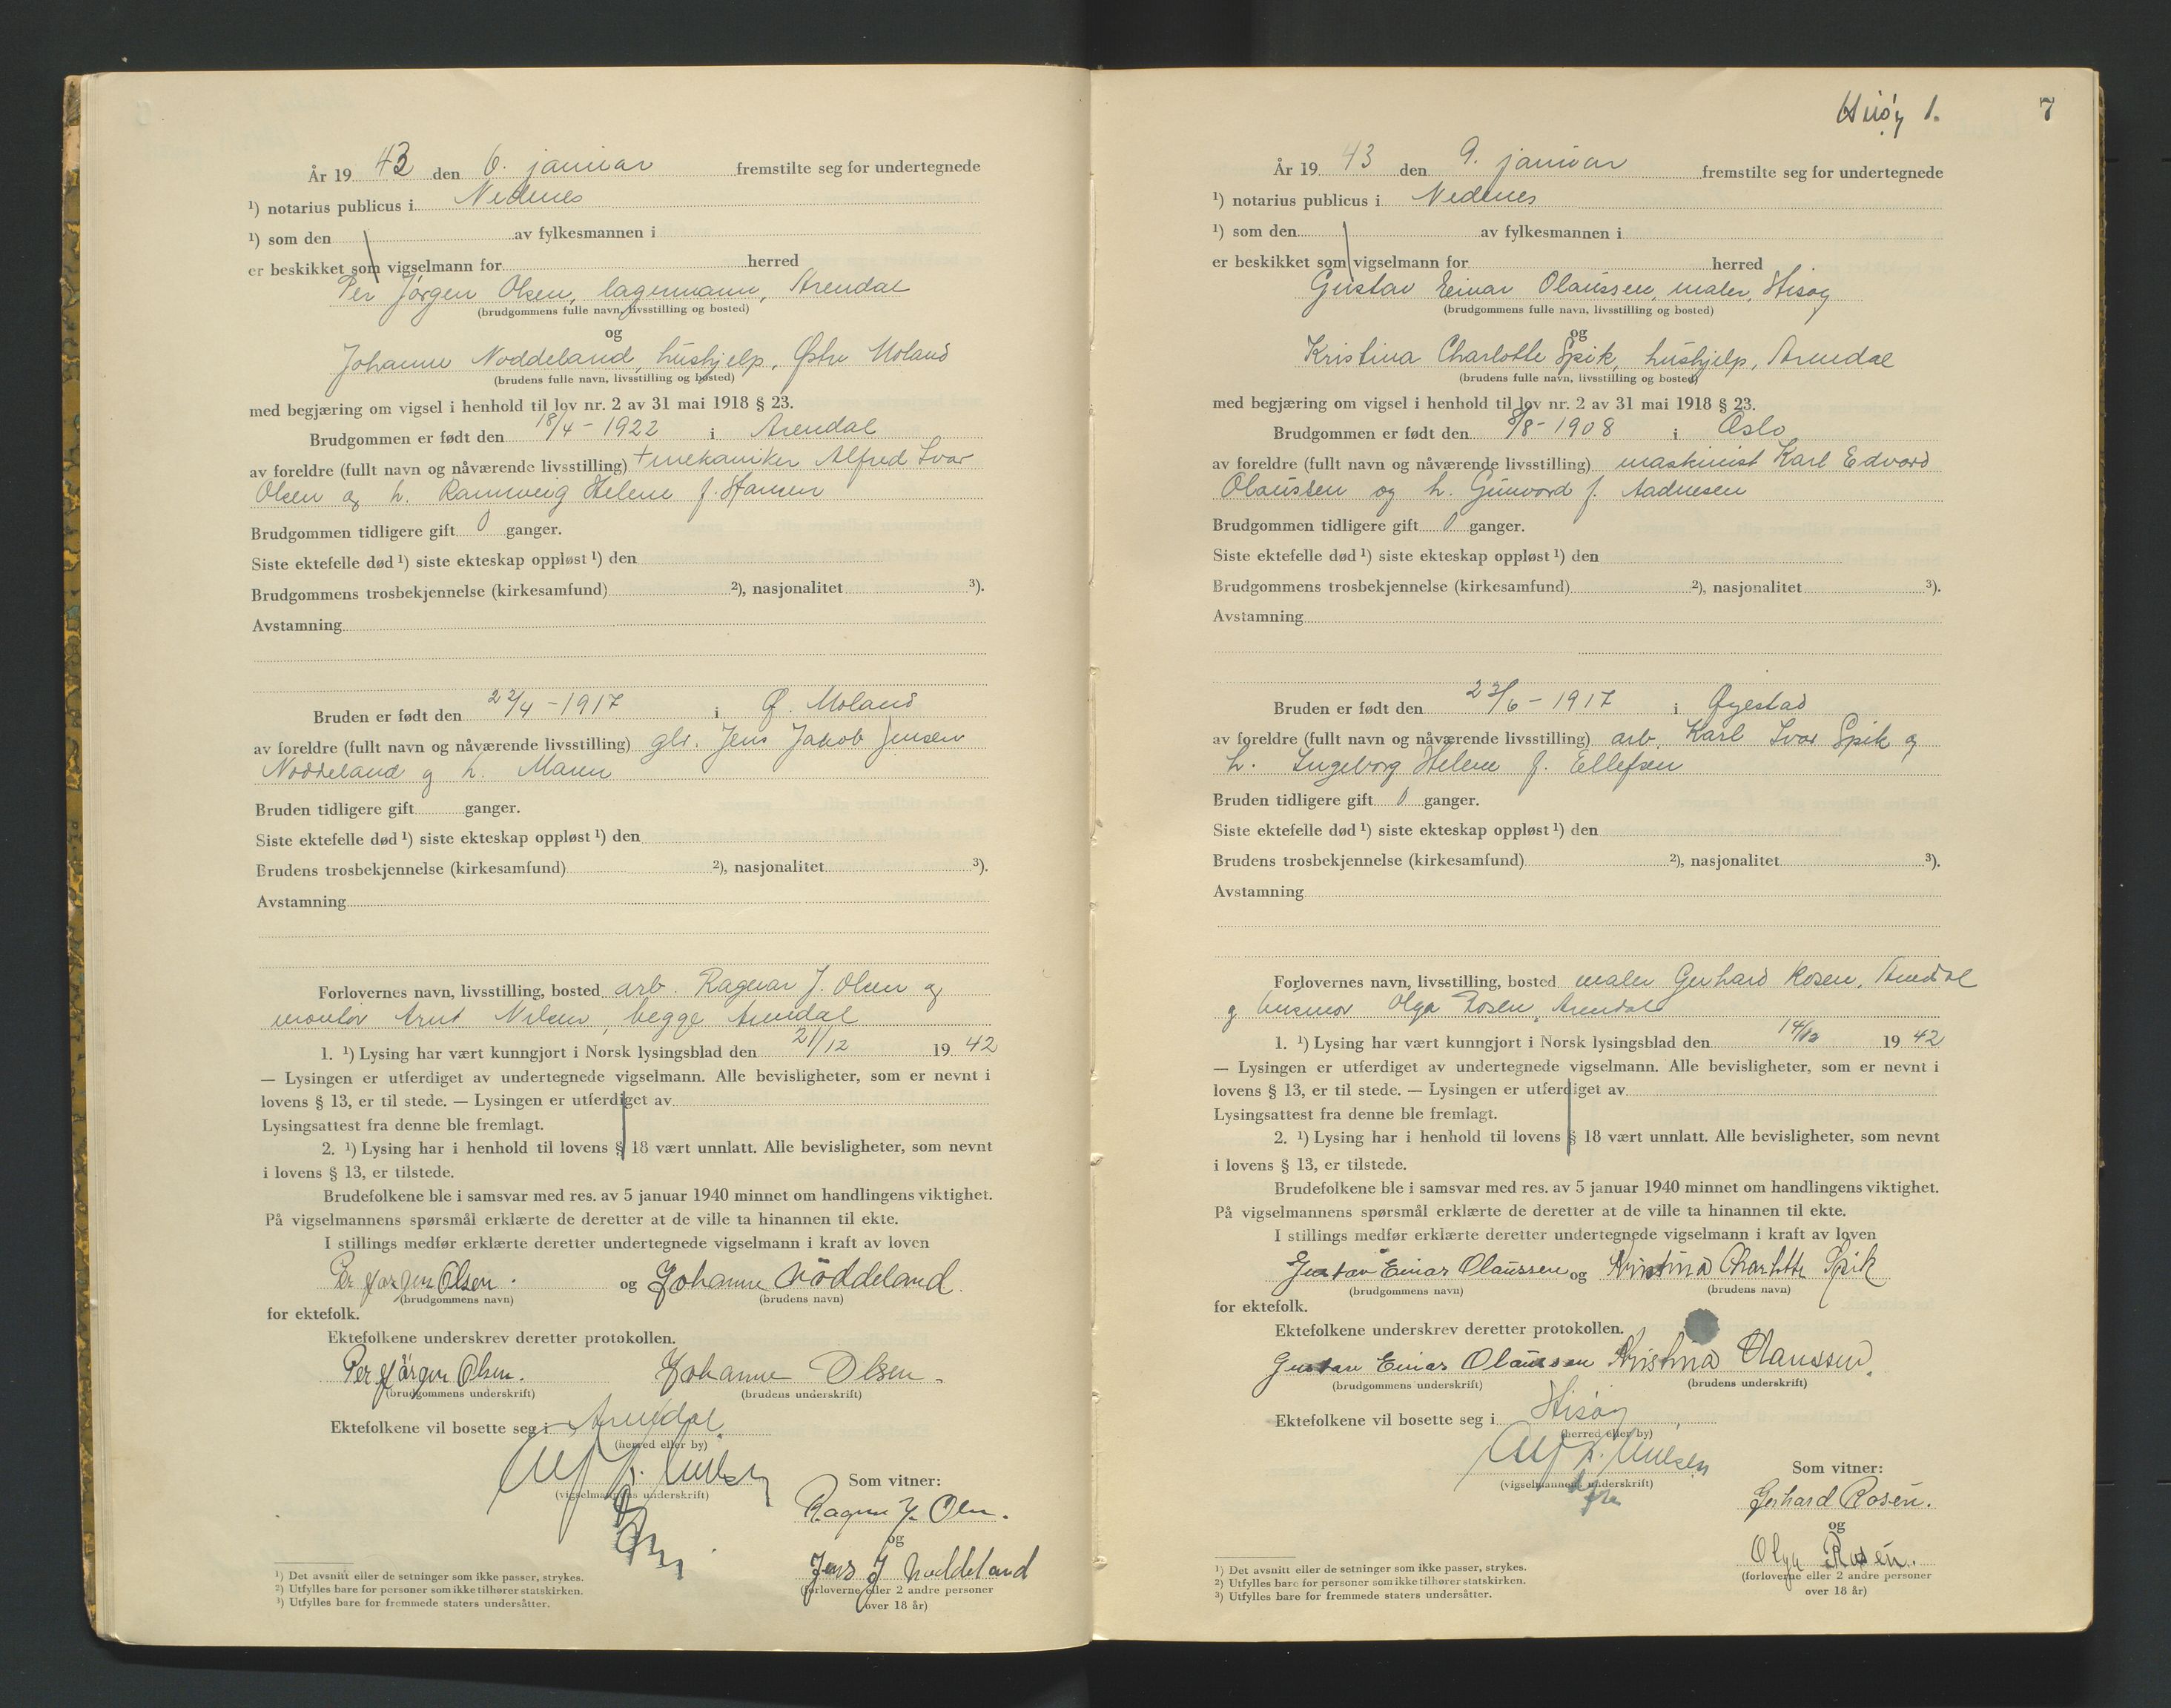 År 19 43 den 6. januar fremstilte seg for undertegnede
¹) notarius publicus i Nedenes
¹) som den av fylkesmannen i
er beskikket som vigselmann for herred
Per Jørgen Olsen, lagermann, Arendal
(brudgommens fulle navn, livsstilling og bosted)
og
Johanne Noddeland, hushjelp, Østre Moland
(brudens fulle navn, livsstilling og bosted)
med begjæring om vigsel i henhold til lov nr. 2 av 31 mai 1918 § 23.
Brudgommen er født den 18/4 - 1922 i Arendal
av foreldre (fullt navn og nåværende livsstilling) + mekaniker Alfred Ivar
Olsen og h. Rannveig Helene f. Hansen
Brudgommen tidligere gift 0 ganger.
Siste ektefelle død ¹) siste ekteskap oppløst ¹) den
Brudgommens trosbekjennelse (kirkesamfund) ²), nasjonalitet ³).
Avstamning
Bruden er født den 22/4 - 1917 i Ø. Moland
av foreldre (fullt navn og nåværende livsstilling) Jens Jakob Jensen
Noddeland og h. Maren
Bruden tidligere gift ganger.
Siste ektefelle død ¹) siste ekteskap oppløst ¹) den
Brudens trosbekjennelse (kirkesamfund) ²), nasjonalitet ³).
Avstamning
Forlovernes navn, livsstilling, bosted arb. Ragnar J. Olsen og
montør Arnt Nilsen, begge Arendal
1. ¹) Lysing har vært kunngjort i Norsk lysingsblad den 21/12 19 42
— Lysingen er utferdiget av undertegnede vigselmann. Alle bevisligheter, som er nevnt i
lovens § 13, er til stede. — Lysingen er utferdiget av
Lysingsattest fra denne ble fremlagt.
2. ¹) Lysing har i henhold til lovens § 18 vært unnlatt. Alle bevisligheter, som nevnt
i lovens § 13, er tilstede.
Brudefolkene ble i samsvar med res. av 5 januar 1940 minnet om handlingens viktighet.
På vigselmannens spørsmål erklærte de deretter at de ville ta hinannen til ekte.
I stillings medfør erklærte deretter undertegnede vigselmann i kraft av loven
Per Jørgen Olsen. og Johanne Noddeland.
(brudgommens navn) (brudens navn)
for ektefolk.
Ektefolkene underskrev deretter protokollen.
Per Jörgen Olsen. Johanne Olsen.
(brudgommens underskrift) (brudens underskrift)
Ektefolkene vil bosette seg i Arendal
(herred eller by)
(vigselmannens underskrift)
Som vitner:
Ragnar J. Olsen.
og
Jens J Noddeland
(forloverne eller 2 andre personer
over 18 år)
¹) Det avsnitt eller de setninger som ikke passer, strykes.
²) Utfylles bare for personer som ikke tilhører statskirken.
³) Utfylles bare for fremmede staters undersåtter.
Hisøy 1. 7
År 19 43 den 9. januar fremstilte seg for undertegnede
¹) notarius publicus i Nedenes
¹) som den av fylkesmannen i
er beskikket som vigselmann for herred
Gustav Einar Olaussen, maler, Hisøy
(brudgommens fulle navn, livsstilling og bosted)
og
Kristina Charlotte Spik, hushjelp, Arendal
(brudens fulle navn, livsstilling og bosted)
med begjæring om vigsel i henhold til lov nr. 2 av 31 mai 1918 § 23.
Brudgommen er født den 8/8 - 1908 i Oslo
av foreldre (fullt navn og nåværende livsstilling) maskinist Karl Edvard
Olaussen og h. Gunvord f. Aadnesen
Brudgommen tidligere gift 0 ganger.
Siste ektefelle død ¹) siste ekteskap oppløst ¹) den
Brudgommens trosbekjennelse (kirkesamfund) ²), nasjonalitet ³).
Avstamning
Bruden er født den 23/6 - 1917 i Øyestad
av foreldre (fullt navn og nåværende livsstilling) arb. Karl Ivar Spik og
h. Ingeborg Helene f. Ellefsen
Bruden tidligere gift 0 ganger.
Siste ektefelle død ¹) siste ekteskap oppløst ¹) den
Brudens trosbekjennelse (kirkesamfund) ²), nasjonalitet ³).
Avstamning
Forlovernes navn, livsstilling, bosted maler Gerhard Rosen, Arendal
og husmor Olga Rosen, Arendal
1. ¹) Lysing har vært kunngjort i Norsk lysingsblad den 14/12 19 42
— Lysingen er utferdiget av undertegnede vigselmann. Alle bevisligheter, som er nevnt i
lovens § 13, er til stede. — Lysingen er utferdiget av
Lysingsattest fra denne ble fremlagt.
2. ¹) Lysing har i henhold til lovens § 18 vært unnlatt. Alle bevisligheter, som nevnt
i lovens § 13, er tilstede.
Brudefolkene ble i samsvar med res. av 5 januar 1940 minnet om handlingens viktighet.
På vigselmannens spørsmål erklærte de deretter at de ville ta hinannen til ekte.
I stillings medfør erklærte deretter undertegnede vigselmann i kraft av loven
Gustav Einar Olaussen og Kristina Charlotte Spik
(brudgommens navn) (brudens navn)
for ektefolk.
Ektefolkene underskrev deretter protokollen.
Gustav Einar Olaussen Kristina Olaussen.
(brudgommens underskrift) (brudens underskrift)
Ektefolkene vil bosette seg i Hisøy
(herred eller by)
(vigselmannens underskrift)
Som vitner:
Gerhard Rosén.
og
Olga Rosén.
(forloverne eller 2 andre personer
over 18 år)
¹) Det avsnitt eller de setninger som ikke passer, strykes.
²) Utfylles bare for personer som ikke tilhører statskirken.
³) Utfylles bare for fremmede staters undersåtter.